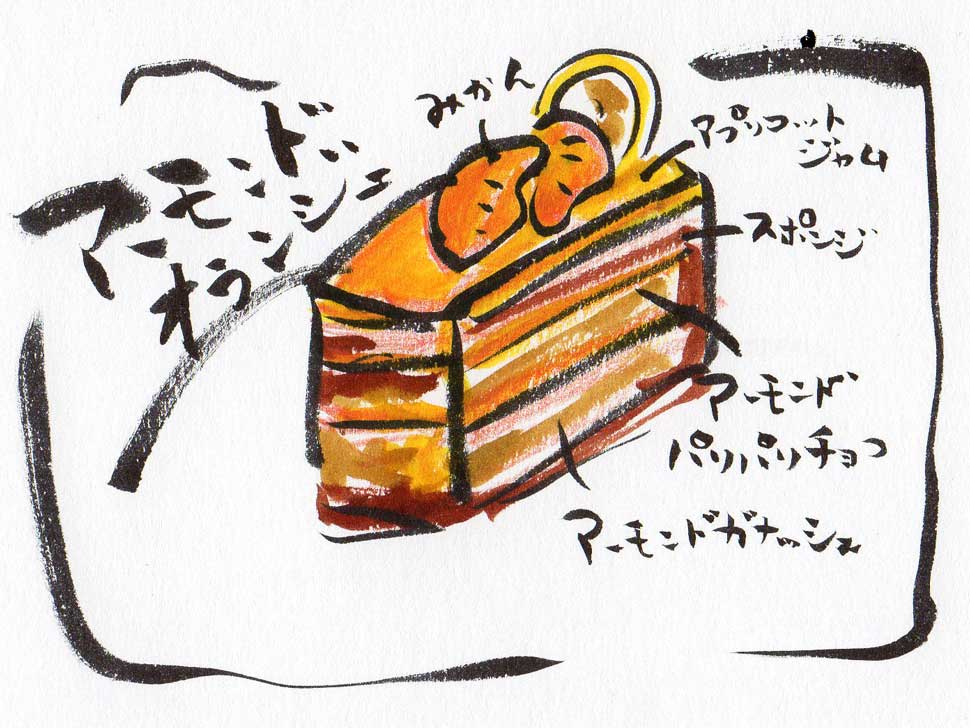 アーモンド
オランジェ
みかん
アプリコット
ジャム
スポンジ
アーモンド
パリパリチョコ
アーモンドガナッシュ